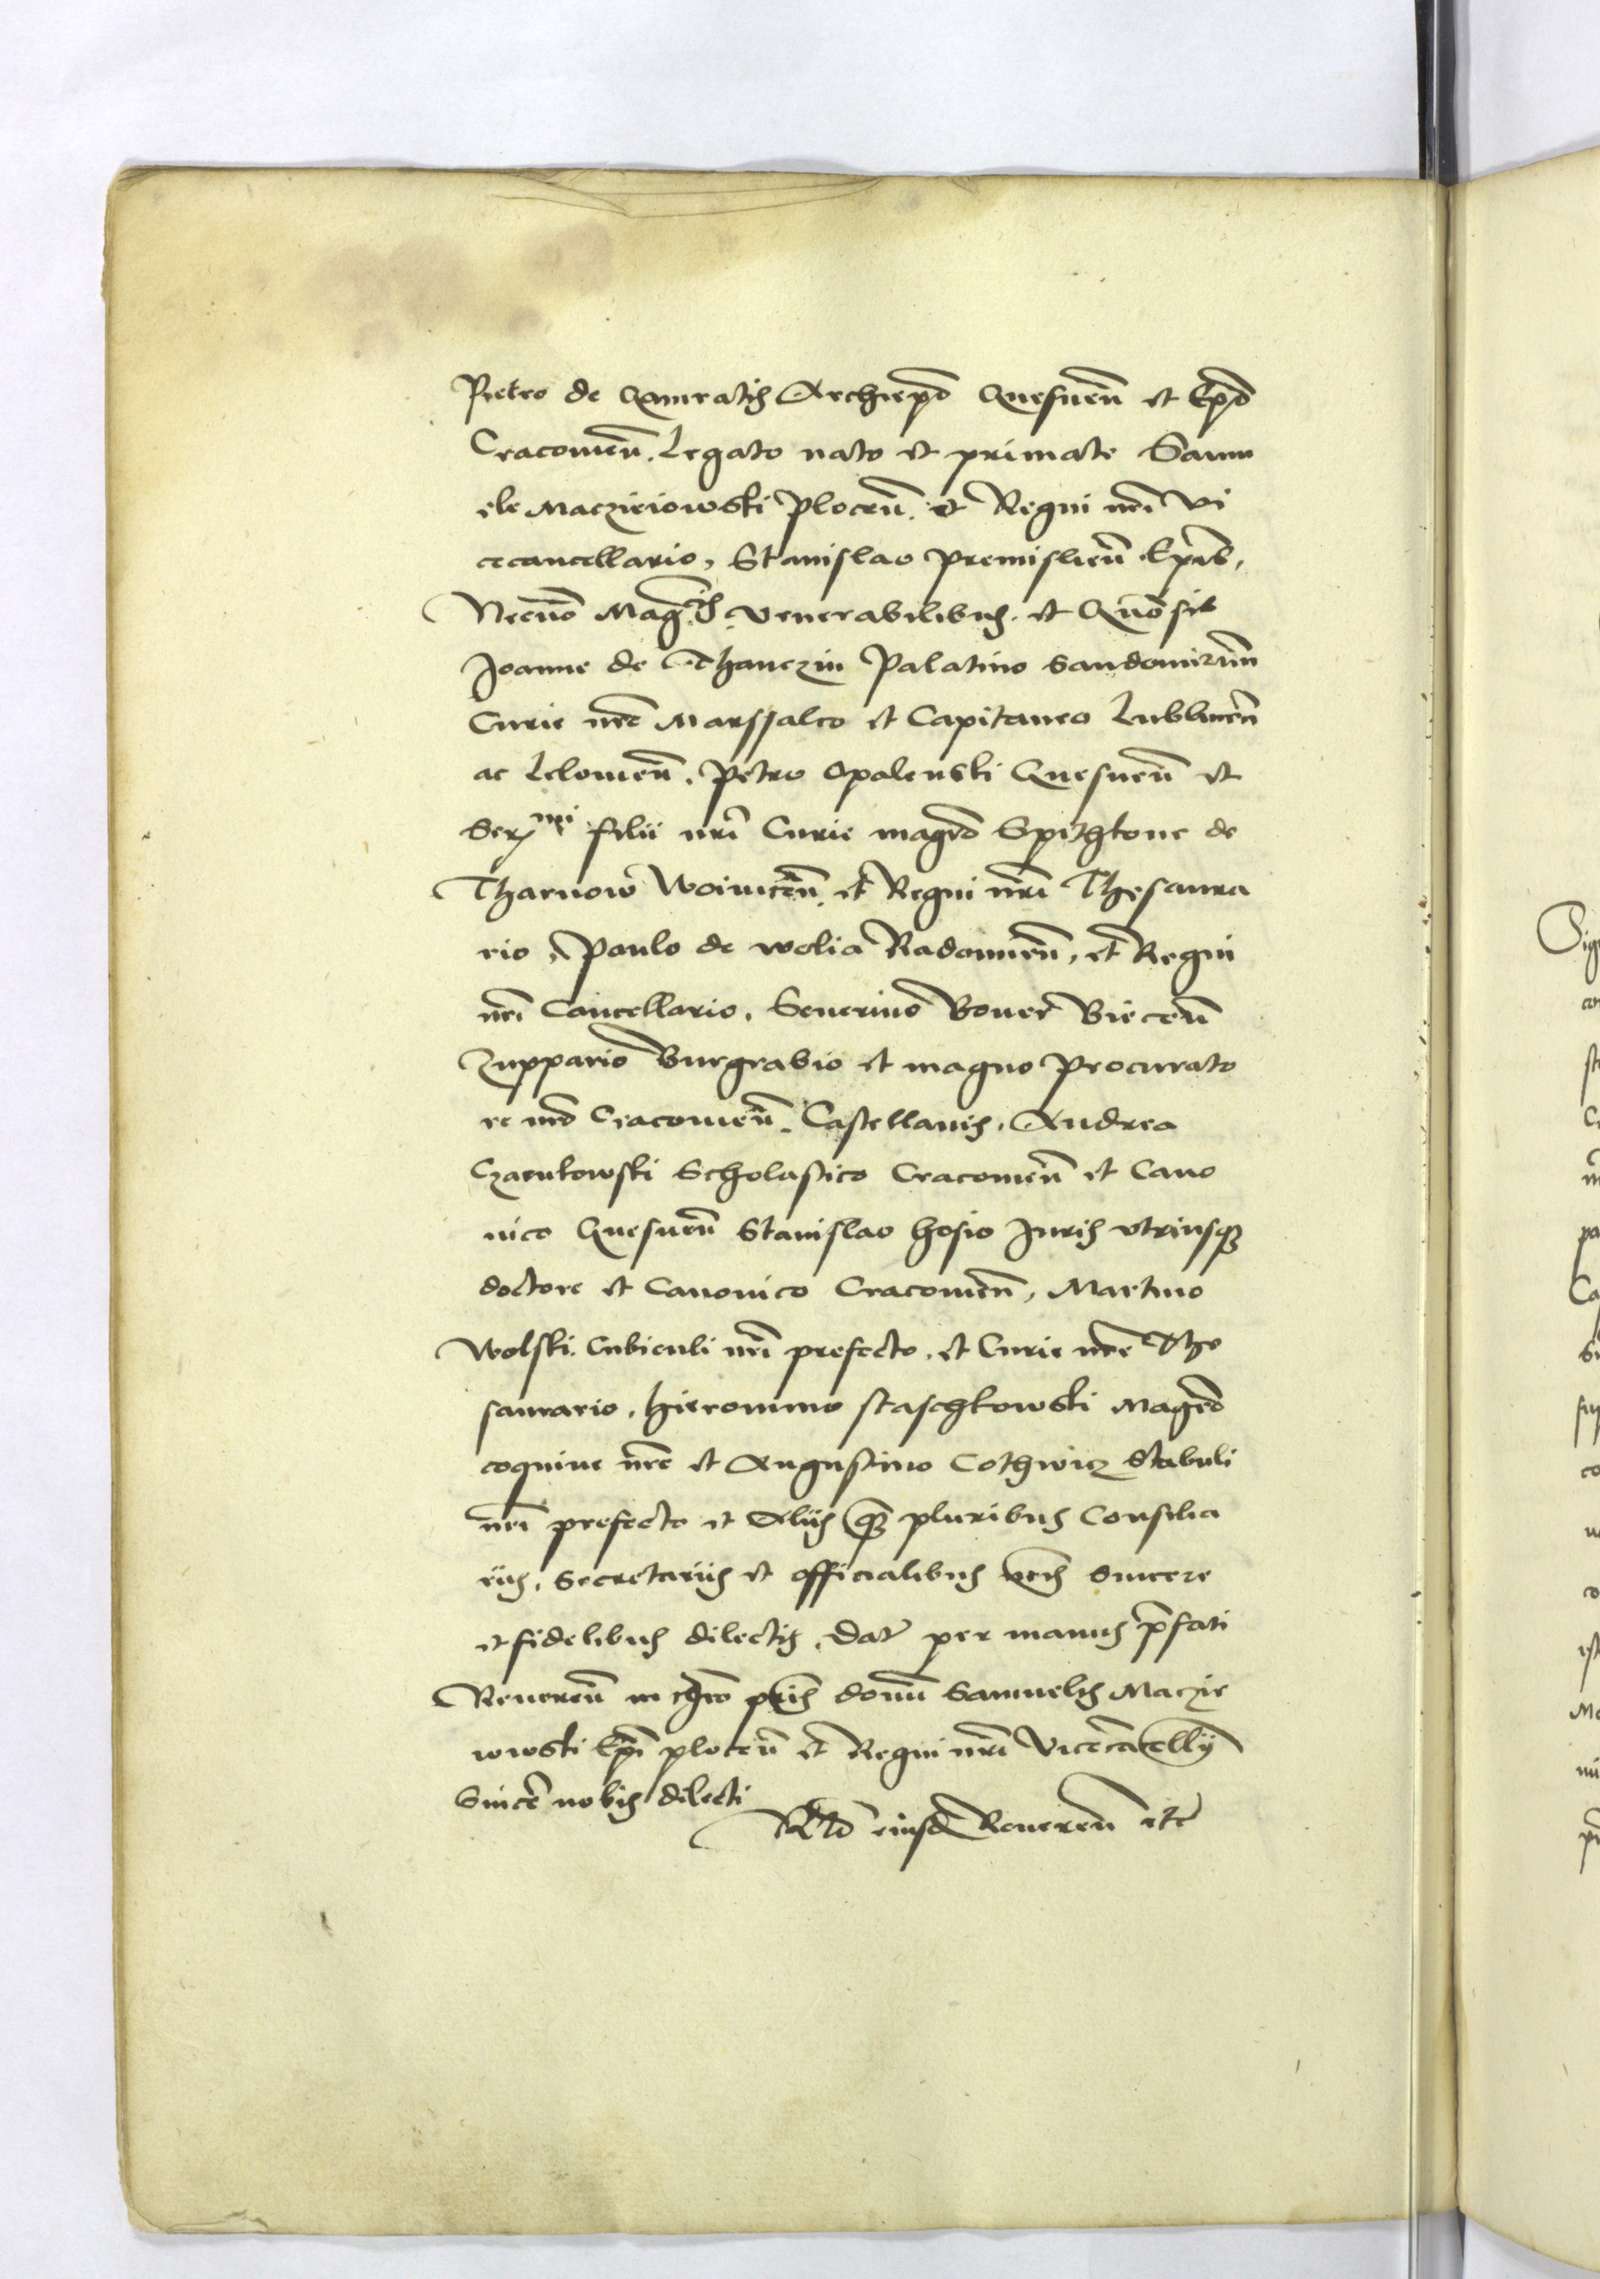 Pietro de Gamratis Archiepo Gnesnen et Epo
Cracovien. Legato nato et primate Samu
ele Maczieiowski Plocen. et Regni nri Vi
cecancellario, Stanislao Premislien Epis,
Necno Mag.cis venerabilibus. et Gnosis
Joanne de Thanczin Palatino Sandomirien
Curie nre Marssalco et Capitaneo Lublinen
ac Lelovien. Petro Opalenski Gnesnen et
Ser.mi filii nri Curie magro Spithkone de
Tharnow Woinicen. et Regni nri Thesaura
rio, Paulo de Wolia Radomien, et Regni
nri Cancellario, Severino Boner Biecen
Zuppario Burgrabio et magno Procurato
re nro Cracovien. Castellanis, Andrea
Czarnkowski Scholastico Cracovien et Cano
nico Gnesnen Stanislao hosio Juris utriusque
doctore et Canonico Cracovien, Martino
Wolski Cubiculi nri prefecto, et Curie nre The
saurario, hieronimo staschkowski Magro
coquine nre et Augustino Cothwicz Stabuli
nri prefecto et Aliis que pluribus Consilia
riis, Secretariis et officialibus nris sincere
et fidelibus dilectis. Dat per manus prefati
Reveren in chro pris domini Samuelis Maczie
iowski Epi plocen et Regni nri Vicecancellii
Since nobis dilecti
Rlo eiusd Reveren etc